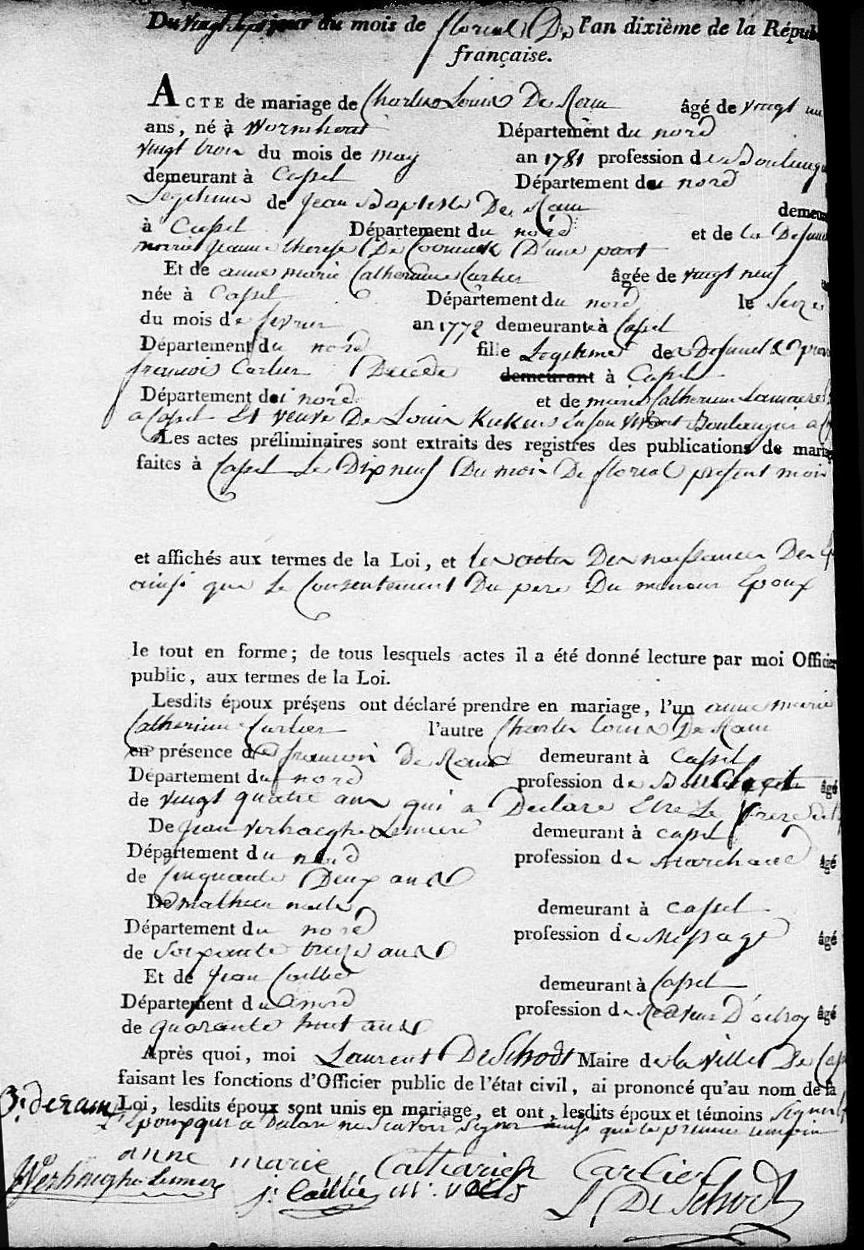 Du vingt sept jour du mois de floréal De l'an dixième de la Répub
française.
ACTE de mariage de Charles Louis De Ram âgé de vingt un
ans, né à Wormhout Département du nord
vingt trois du mois de may an 1781 profession de Boulang
demeurant à Cassel Département du nord
Legitime de Jean Baptiste De Ram demeu
à Cassel Département du nord et de la Defun
marie Jeanne therese De Coninck D'une part
Et de anne marie Catherinne Carlier âgée de vingt neuf
née à Cassel Département du nord le seize
du mois de fevrier an 1772 demeurante à Cassel
Département du nord fille Legitime de Defunct
francois Carlier Décédé demeurant à Cassel
Département du nord et de marie Catherinne
à Cassel Et veuve De Louis En son vivant Boulanger à
Les actes préliminaires sont extraits des registres des publications de maria
faites à Cassel Le Dix neuf Du mois De floreal present mois
et affichés aux termes de la Loi, et les actes De naissances Des
ainsi que Le Consentement Du pere Du mineur Epoux
le tout en forme; de tous lesquels actes il a été donné lecture par moi Officier
public, aux termes de la Loi.
Lesdits époux présens ont déclaré prendre en mariage, l'un anne marie
Catherinne Carlier l'autre Charles Louis De Ram
en présence de francois De Ram demeurant à Cassel
Département du nord profession de âgé
de vingt quatre ans qui a Declaré Etre Le frere
De Jean Verhaeghe Lemeire demeurant à Cassel
Département du nord profession de Marchand âgé
de cinquante Deux ans
De mathieu demeurant à Cassel
Département du nord profession de Messager âgé
de soixante treize ans
Et de Jean Caillié demeurant à Cassel
Département du nord profession de Receveur D'octroy âgé
de quarante huit ans
Après quoi, moi Laurent DeSchodt Maire de la ville De Cas
faisant les fonctions d'Officier public de l'état civil, ai prononcé qu'au nom de la
Loi, lesdits époux sont unis en mariage, et ont, lesdits époux et témoins signé
L'Epoux qui a Declaré ne scavoir signer ainsi que le premier temoin
anne marie Catharien Carlier
Verhaeghe Lemeire j. Caillié
L. DeSchodt